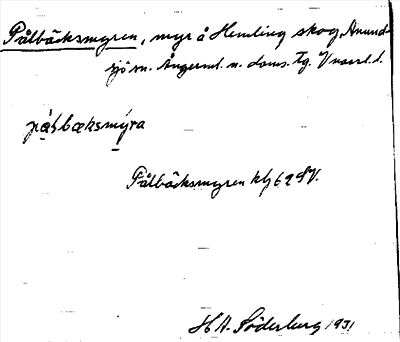 Pålbäcksmyren, myr å Hemling skog, Anund-
sjö sn. Ångerml. n. doms. tg. V norrl. l.
pålbæksmýra
Pålbäcksmyren kbl 62 SV.
H A. Söderberg 1931